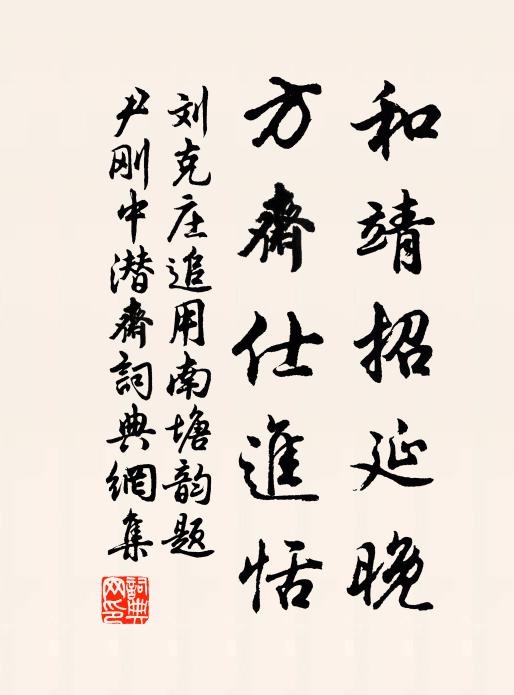 和靖招延晚
方齋仕進恬
刘克庄追用南塘韵题
尹刚中潜齋詞典網集
詞典网印